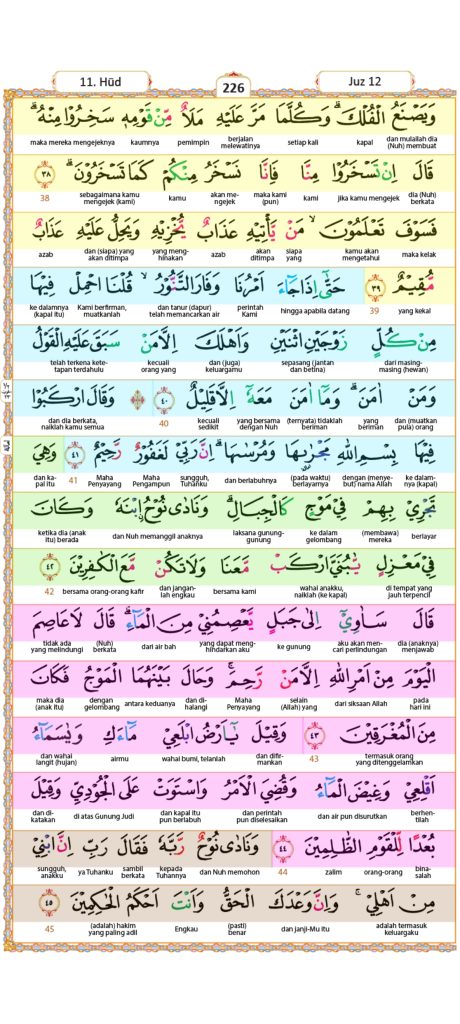 11. Hūd 226 Juz 12
وَيَصْنَعُ الْفُلْكَۗ وَكُلَّمَا مَرَّ عَلَيْهِ مَلَاٌ مِّنْ قَوْمِهٖ سَخِرُوْا مِنْهُۗ
dan mulailah dia (Nuh) membuat kapal setiap kali berjalan melewatinya pemimpin kaumnya maka mereka mengejeknya
قَالَ اِنْ تَسْخَرُوْا مِنَّا فَاِنَّا نَسْخَرُ مِنْكُمْ كَمَا تَسْخَرُوْنَۗ ٣٨
dia (Nuh) berkata jika kamu mengejek kami maka kami (pun) akan mengejek kamu sebagaimana kamu mengejek (kami) 38
فَسَوْفَ تَعْلَمُوْنَۙ مَنْ يَّأْتِيْهِ عَذَابٌ يُّخْزِيْهِ وَيَحِلُّ عَلَيْهِ عَذَابٌ
maka kelak kamu akan mengetahui siapa yang akan ditimpa azab yang menghinakan dan (siapa) yang akan ditimpa azab
مُّقِيْمٌ ٣٩ حَتّٰىٓ اِذَا جَاۤءَ اَمْرُنَا وَفَارَ التَّنُّوْرُۙ قُلْنَا احْمِلْ فِيْهَا
yang kekal 39 hingga apabila datang perintah Kami dan tanur (dapur) telah memancarkan air Kami berfirman, muatkanlah ke dalamnya (kapal itu)
مِنْ كُلٍّ زَوْجَيْنِ اثْنَيْنِ وَاَهْلَكَ اِلَّا مَنْ سَبَقَ عَلَيْهِ الْقَوْلُ
dari masing-masing (hewan) sepasang (jantan dan betina) dan (juga) keluargamu kecuali orang yang telah terkena ketetapan terdahulu
وَمَنْ اٰمَنَۗ وَمَآ اٰمَنَ مَعَهٗٓ اِلَّا قَلِيْلٌ ٤٠ وَقَالَ ارْكَبُوْا
dan (muatkan pula) orang yang beriman (ternyata) tidaklah beriman yang bersama dengan Nuh kecuali sedikit 40 dan dia berkata, naiklah kamu semua
فِيْهَا بِسْمِ اللّٰهِ مَجْرٰىهَا وَمُرْسٰىهَاۗ اِنَّ رَبِّيْ لَغَفُوْرٌ رَّحِيْمٌ ٤١ وَهِيَ
ke dalamnya (kapal) dengan (menyebut) nama Allah (pada waktu) berlayarnya dan berlabuhnya sungguh, Tuhanku Maha Pengampun Maha Penyayang 41 dan kapal itu
تَجْرِيْ بِهِمْ فِيْ مَوْجٍ كَالْجِبَالِۗ وَنَادٰى نُوْحُ ابْنَهٗ وَكَانَ
berlayar (membawa) mereka ke dalam gelombang laksana gunung-gunung dan Nuh memanggil anaknya ketika dia (anak itu) berada
فِيْ مَعْزِلٍ يّٰبُنَيَّ ارْكَبْ مَّعَنَا وَلَا تَكُنْ مَّعَ الْكٰفِرِيْنَ ٤٢
di tempat yang jauh terpencil wahai anakku, naiklah (ke kapal) bersama kami dan janganlah engkau bersama orang-orang kafir 42
قَالَ سَاٰوِيْٓ اِلٰى جَبَلٍ يَّعْصِمُنِيْ مِنَ الْمَاۤءِۗ قَالَ لَا عَاصِمَ
dia (anaknya) menjawab aku akan mencari perlindungan ke gunung yang dapat menghindarkan aku dari air bah (Nuh) berkata tidak ada yang melindungi
الْيَوْمَ مِنْ اَمْرِ اللّٰهِ اِلَّا مَنْ رَّحِمَۚ وَحَالَ بَيْنَهُمَا الْمَوْجُ فَكَانَ
pada hari ini dari siksaan Allah selain (Allah) yang Maha Penyayang dan dihalangi antara keduanya dengan gelombang maka dia (anak itu)
مِنَ الْمُغْرَقِيْنَ ٤٣ وَقِيْلَ يٰٓاَرْضُ ابْلَعِيْ مَاۤءَكِ وَيٰسَمَاۤءُ
termasuk orang yang ditenggelamkan 43 dan difirmankan wahai bumi, telanlah airmu dan wahai langit (hujan)
اَقْلِعِيْ وَغِيْضَ الْمَاۤءُ وَقُضِيَ الْاَمْرُ وَاسْتَوَتْ عَلَى الْجُوْدِيِّ وَقِيْلَ
berhentilah dan air pun disurutkan dan perintah pun diselesaikan dan kapal itu pun berlabuh di atas Gunung Judi dan dikatakan
بُعْدًا لِّلْقَوْمِ الظّٰلِمِيْنَ ٤٤ وَنَادٰى نُوْحٌ رَّبَّهٗ فَقَالَ رَبِّ اِنَّ ابْنِيْ
binasalah orang-orang zalim 44 dan Nuh memohon kepada Tuhannya sambil berkata ya Tuhanku sungguh, anakku
مِنْ اَهْلِيْۚ وَاِنَّ وَعْدَكَ الْحَقُّ وَاَنْتَ اَحْكَمُ الْحٰكِمِيْنَ ٤٥
adalah termasuk keluargaku dan janji-Mu itu (pasti) benar Engkau (adalah) hakim yang paling adil 45